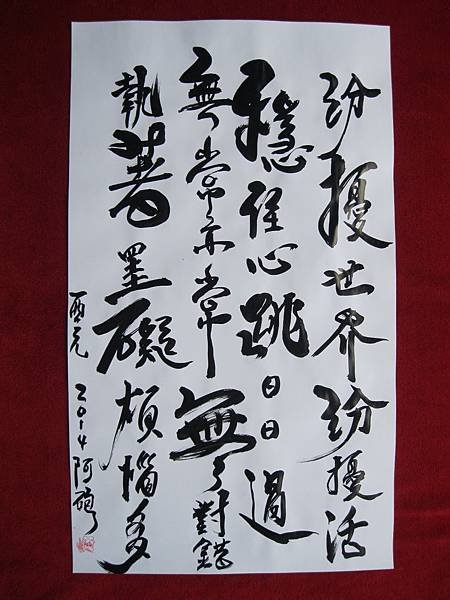 紛擾世界紛擾活
穩住心跳日日過
無常亦常無對錯
執著罣礙煩惱多
西元2014阿砲